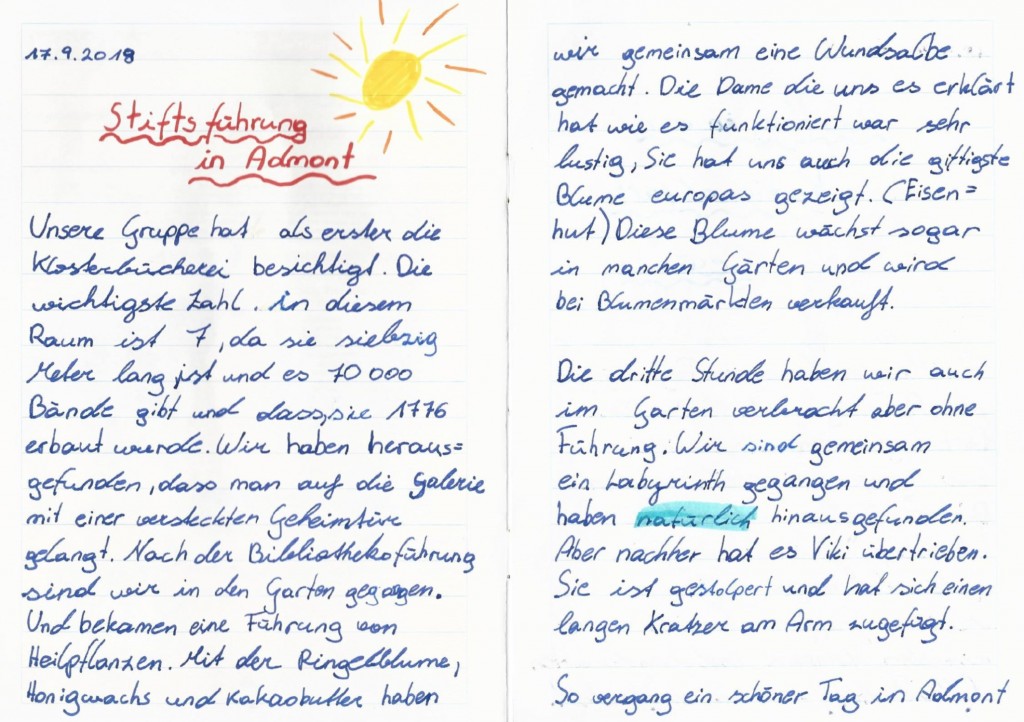 17.9.2018
Stiftsführung
in Admont
Unsere Gruppe hat als erster die
Klosterbücherei besichtigt. Die
wichtigste Zahl. in diesem
Raum ist 7, da sie siebzig
Meter lang ist und es 70 000
Bände gibt und dass sie 1776
erbaut wurde. Wir haben heraus=
gefunden, dass man auf die Galerie
mit einer versteckten Geheimtür
gelangt. Nach der Bibliotheksführung
sind wir in den Garten gegangen.
Und bekamen eine Führung von
Heilpflanzen. Mit der Ringelblume,
Honigwachs und Kakaobutter haben
wir gemeinsam eine Wundsalbe
gemacht. Die Dame die uns es erklärt
hat wie es funktioniert war sehr
lustig, Sie hat uns auch die giftigste
Blume europas gezeigt. (Eisen=
hut) Diese Blume wächst sogar
in manchen Gärten und wird
bei Blumenmärkten verkauft.
Die dritte Stunde haben wir auch
im Garten verbracht aber ohne
Führung. Wir sind gemeinsam
ein Labyrinth gegangen und
haben natürlich hinausgefunden.
Aber nachher hat es Viki übertrieben.
Sie ist gestolpert und hat sich einen
langen Kratzer am Arm zugefügt.
So vergang ein schöner Tag in Admont